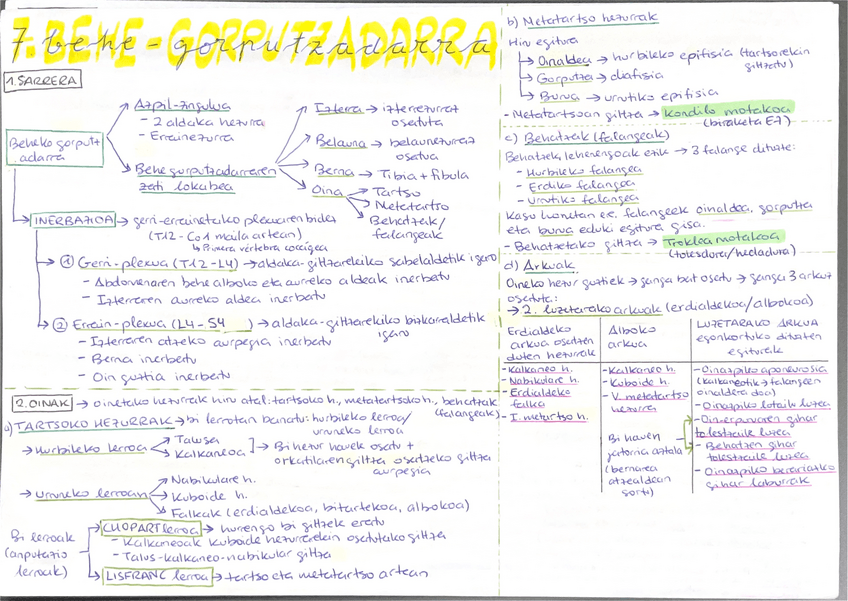 7. BEHE-GORPUTZADARRA
1. SARRERA
Beheko gorputz
adarra
Azpil-zingulua
- 2 aldaka hezurra
- Errainezurra
Behe gorputzadarraren
zati lokabea
Izterra → izterrezurraz
osatuta
Belauna → belaunezurraz
osatua
Berna → Tibia + fibula
Oina → Tartso
Metatartso
Behatzak/
falangeak
INERBAZIOA → gerri-errainetako plexuaren bidez
(T12-Co1 maila artean)
↳ Primera vertebra coccigea
① Gerri-plexua (T12-L4) → aldaka-giltzarekiko sabelaldetik igaro
- Abdomenaren behe alboko eta aurreko aldeak inerbatu
- Izterraren aurreko aldea inerbatu
② Errain-plexua (L4-S4) → aldaka-giltzarekiko bizkarraldetik
igaro
- Izterraren atzeko aurpegia inerbatu
- Berna inerbatu
- Oin guztia inerbatu
2. OINAK → oinetako hezurrak hiru atal: tartsoko h., metatartsoko h., behatzak
(falangeak)
a) TARTSOKO HEZURRAK → bi lerrotan banatu: hurbileko lerroa/
urruneko lerroa
→ Hurbileko lerroa → Talusa
Kalkaneoa
→ Bi hezur hauek osatu →
orkatilaren giltza osatzeko giltza
aurpegia
→ Urruneko lerroan → Nabikulare h.
Kuboide h.
Falkak (erdialdekoa, bitartekoa, albokoa)
Bi lerroak
(anputazio
lerroak)
CHOPART lerroa → hurrengo bi giltzek eratu
- Kalkaneoak kuboide hezurrarekin osatutako giltza
- Talus-kalkaneo-nabikular giltza
LISFRANC lerroa → tartso eta metatartso artean
b) Metatartso hezurrak
Hiru egitura
Oinaldea → hurbileko epifisia (tartsoarekin
giltzatu)
Gorputza → diafisia
Burua → urrutiko epifisia
- Metatartsoan giltza → Kondilo motakoa
(biraketa EZ)
c) Behatzak (falangeak)
Behatzek, lehenengoak ezik → 3 falange dituzte:
- Hurbileko falangea
- Erdiko falangea
- Urrutiko falangea
Kasu honetan ere, falangeek oinaldea, gorputza
eta burua eduki egitura gisa.
- Behatzetako giltza → Troklea motakoa
(tolesdura/hedadura)
d) Arkuak
Oineko hezur guztiek → ganga bat osatu → ganga 3 arkuz
osatuta:
→ 2. luzetarako arkuak (erdialdekoa/albokoa)
Erdialdeko
arkua osatzen
duten hezurrak
- Kalkaneo h.
- Nabikulare h.
- Erdialdeko
falka
- I. metartso h.
Alboko
arkua
- Kalkaneo h.
- Kuboide h.
- V. metatartso
hezurra
Bi hauen
jatorria aztala
(bernaren
atzealdean
sortu)
LUZETARAKO ARKUA
egonkortuko dituzten
egiturak
- Oinazpiko aponeurosia
(kalkaneotik → falangeen
oinaldera doa)
- Oinazpiko lotailu luzea
- Oinerpuruaren gihar
tolestzaile luzea
- Behatzen gihar
tolestzaile luzea
- Oinazpiko berariazko
gihar laburrak